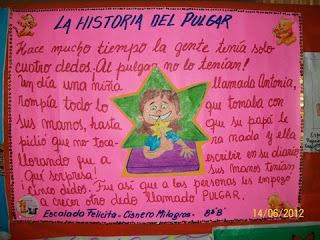 LA HISTORIA DEL PULGAR
Hace mucho tiempo la gente tenía solo
cuatro dedos. ¡Al pulgar no lo tenían!
Un día una niña llamada Antonia,
rompía todo lo que tomaba con
sus manos, hasta que su papá le
pidió que no toca- ra nada y ella
llorando fue a escribir en su diario,
Qué sorpresa! sus manos tenían
¡Cinco dedos. Fue así que a las personas les empezó
a crecer otro dedo llamado PULGAR.
Escalada Felicita - Cisnero Milagros - 8º B.
14/06/2012